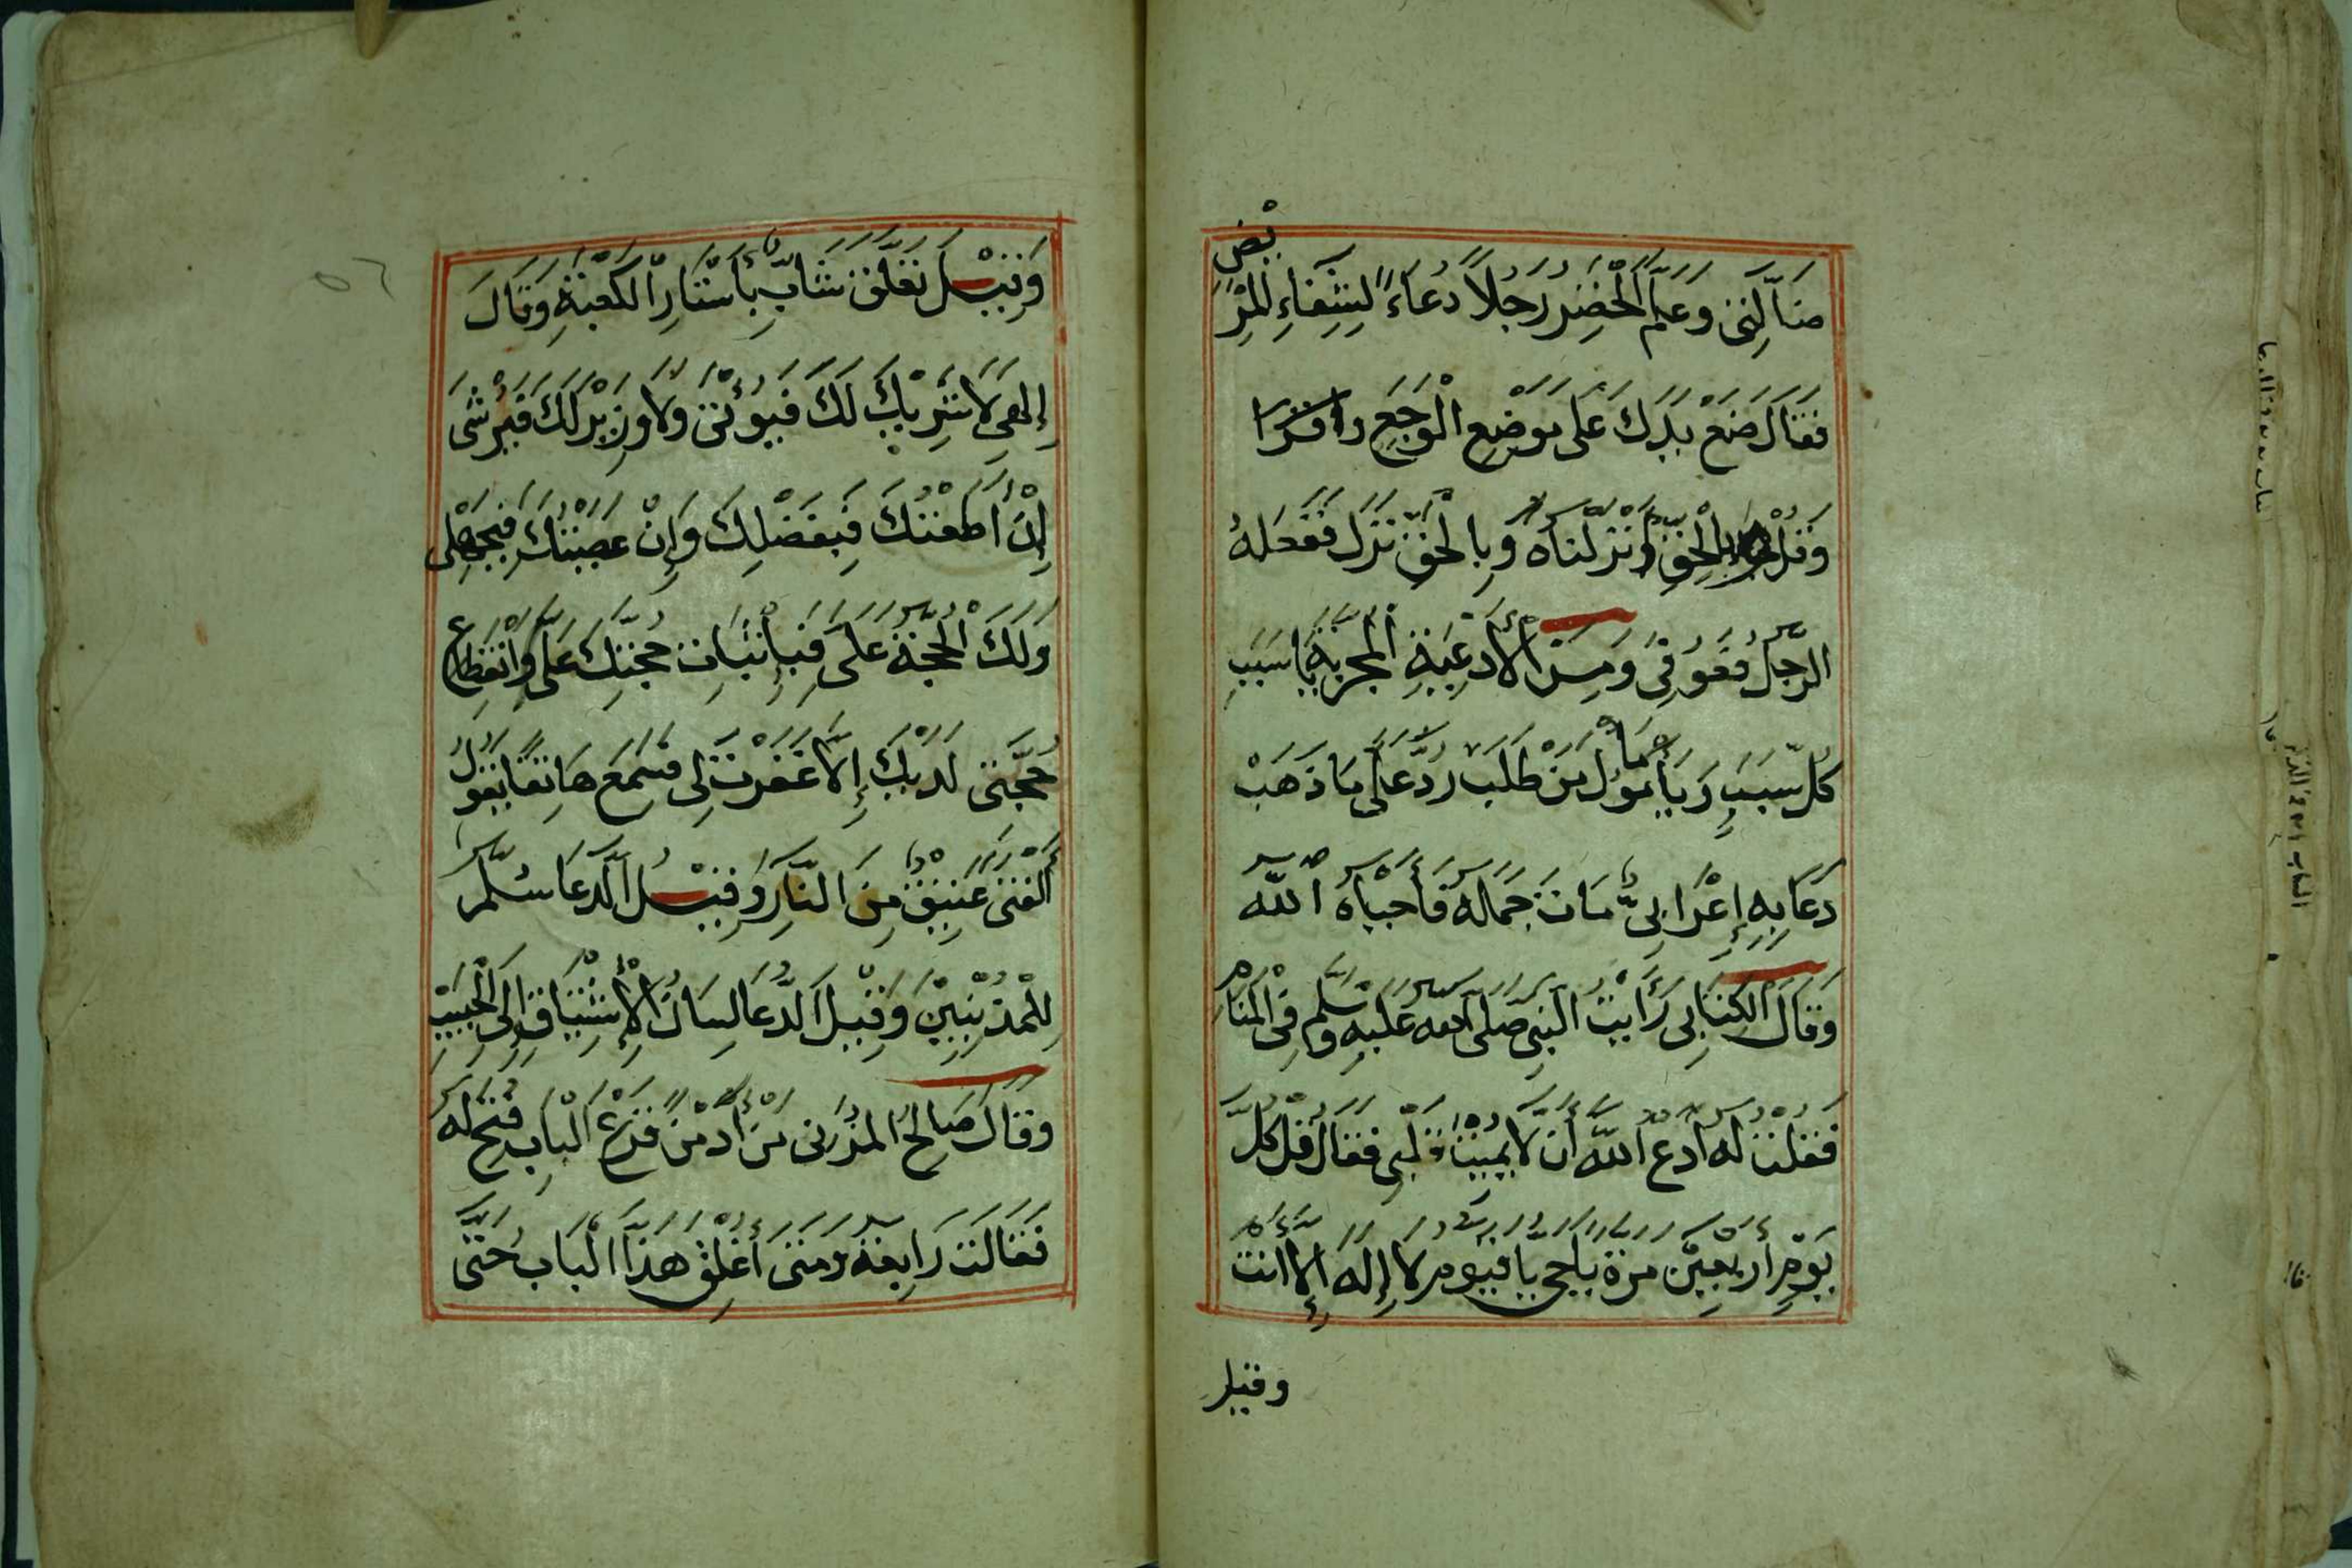 ضَالَّتِي وَعَلَّمَ الْخَضِرُ رَجُلاً دُعَاءً لِشِفَاءِ الْمَرِيْضِ
فَقَالَ ضَعْ يَدَكَ عَلَى مَوْضِعِ الْوَجَعِ وَاقْرَا
وَقُلْ بِالْحَقِّ اَنْزَلْنَاهُ وَبِالْحَقِّ نَزَلَ فَفَعَلَهُ
الرَّجُلُ فَعُوفِيَ وَمِنَ الْأَدْعِيَةِ الْمُجَرَّبَةِ يَا سَبَبَ
كُلِّ سَبَبٍ وَيَا مَأْمُوْلَ مَنْ طَلَبَ رُدَّ عَلَىَّ مَا ذَهَبْ
دَعَا بِهِ إِعْرَابِىٌّ مَاتَ جِمَالُهُ فَأَحْيَاهُ اللّٰه
وَقَالَ الْكِتَابِى رَأَيْتُ النَّبِىَّ صَلَّى اللّٰه عَلَيْهِ وَسَلَّم فِى الْمَنَامِ
فَقُلْتُ لَهُ اُدْعُ اللّٰهَ أَنْ لَّا يُمِيْتَ قَلْبِى فَقَالَ قُلْ كُلَّ
يَوْمٍ أَرْبَعِيْنَ مَرَّةً يَا حَىُّ يَا قَيُّومُ لَا إِلٰهَ إِلَّا أَنْتَ
وقيل
٥٦
وَقِيْلَ تَعَلَّقَ شَابٌّ بِأَسْتَارِ الْكَعْبَةِ وَقَالَ
إِلٰهِى لَا شَرِيْكَ لَكَ فَيُؤْتٰى وَلَا وَزِيْرَ لَكَ فَيُرْشٰى
إِنْ أَطَعْتُكَ فَبِفَضْلِكَ وَإِنْ عَصَيْتُكَ فَبِجَهْلِى
وَلَكَ الْحُجَّةُ عَلَىَّ فَبِإِثْبَاتِ حُجَّتِكَ عَلَىَّ وَانْقِطَاعِ
حُجَّتِى لَدَيْكَ إِلَّا غَفَرْتَ لِى فَسَمِعَ هَاتِفًا يَقُوْلُ
الْفَتٰى عَتِيْقٌ مِنَ النَّارِ وَقِيْلَ الدُّعَا سُلَّم
لِلْمُذْنِبِيْنَ وَقِيْلَ الدُّعَا لِسَانُ الْإِشْتِيَاقِ إِلَى الْحَبِيْبِ
وَقَالَ صَالِحُ الْمُزَنِى مَنْ أَدْمَنَ قَرْعَ الْبَابِ فُتِحَ لَهُ
فَقَالَتْ رَابِعَةُ وَمَتٰى أُغْلِقَ هٰذَا الْبَابُ حَتّٰى